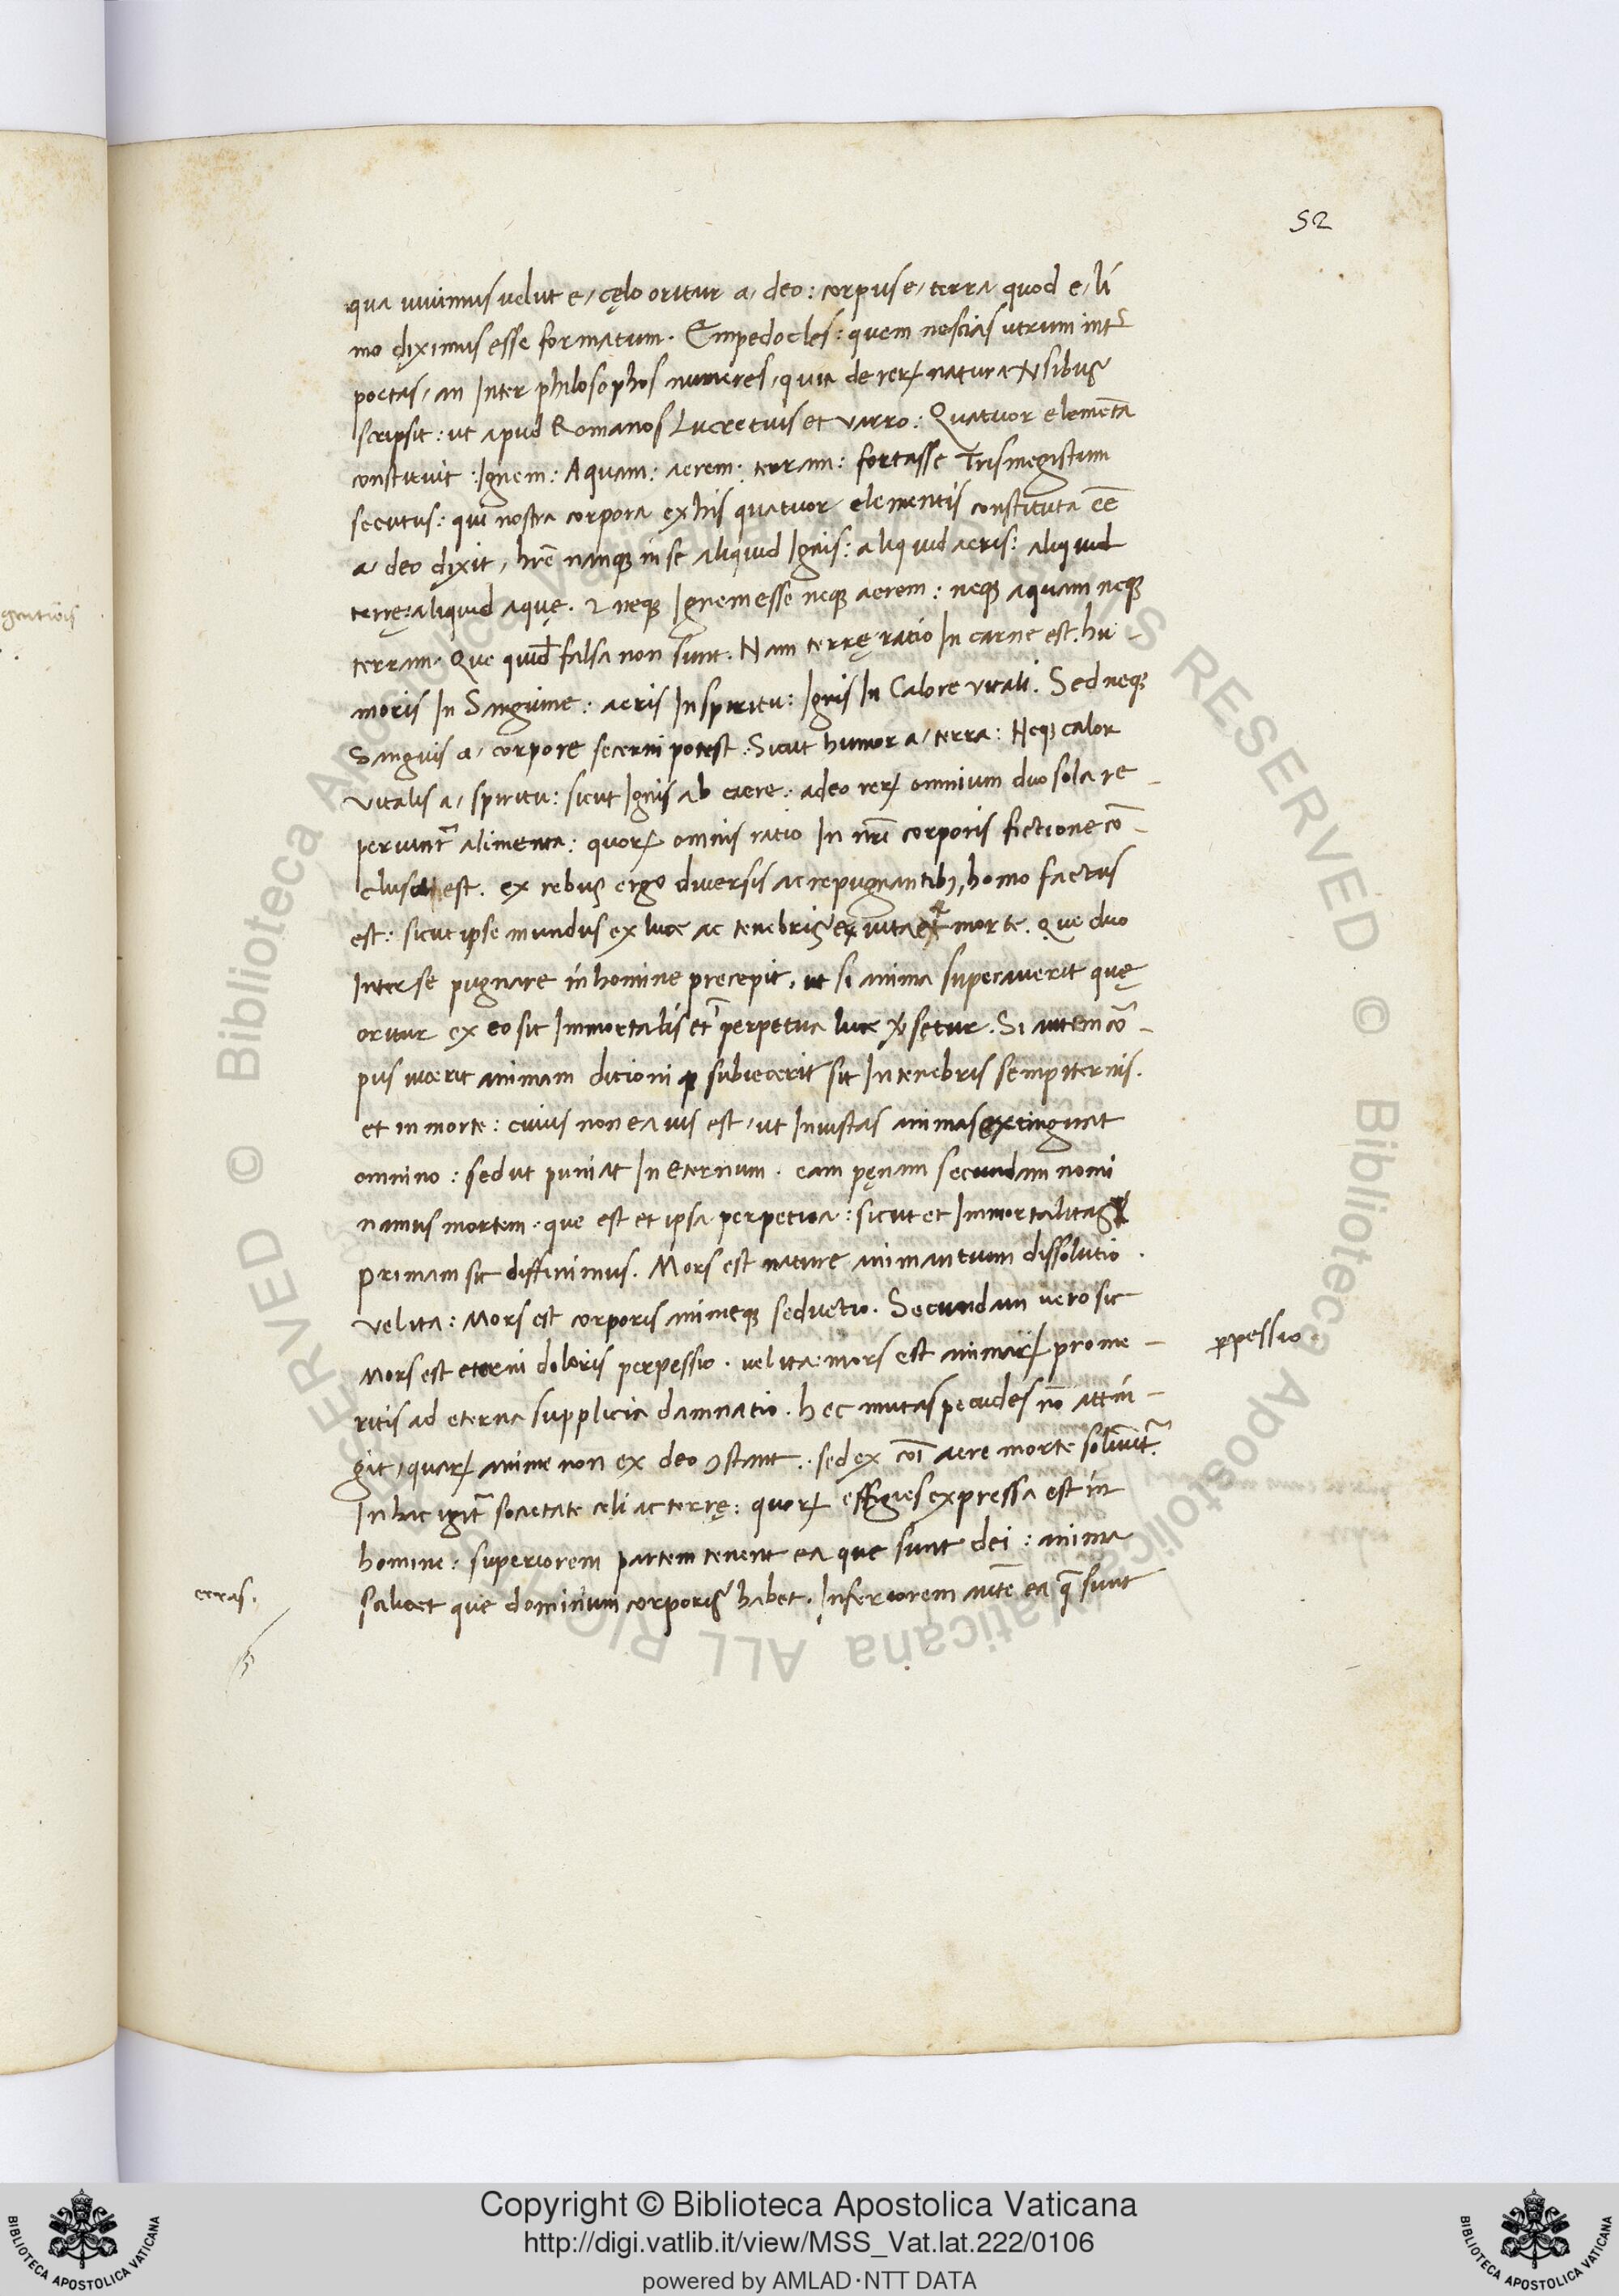 52
qua vivimus velut e/ cęlo oritur a/ deo: corpus e/ terra quod e/ li
mo diximus esse formatum. Empedocles: quem nescias utrum intʳ
poetas/ an Inter philosophos numeres/ quia de reꝝ natura v̾sibus
scripsit: ut apud Romanos Lucretius et varro: Quatuor elemēta
constituit: Ignem: Aquam: aerem: terram: fortasse Trismegistum
secutus: qui nostra corpora ex his quatuor elementis constituta eē
a deo dixit, hr̄e nanqꝫ in se aliquid Ignis: aliquid aeris: aliquid
terrę: aliquid aquę. & neqꝫ Ignem esse neqꝫ aerem: neqꝫ aquam neqꝫ
terram. Que quid̄ falsa non sunt. Nam terrę ratio In carne est. hu-
moris In Sanguine: aeris In spiritu: Ignis In Calore vitali. Sed neqꝫ
Sanguis a/ corpore secerni potest: Sicut humor a/ terra: Neqꝫ calor
vitalis a/ spiritu: sicut Ignis ab aere: adeo reꝝ omnium duo sola re-
periunt᷑ alimenta: quoꝝ omnis ratio In nr̄i corporis fictione cō-
clusa est. ex rebus ergo diversis ac repugnantibꝫ, homo factus
est: sicut ipse mundus ex luce ac tenebris ex vita et morte. Que duo
Inter se pugnare in homine precepit, ut si anima superaverit quę
oritur ex eo sit Immortalis et ī perpetua luce v̾setur. Si autem cō-
pus vicerit animam dicioniqꝫ subiecerit sit In tenebris sempiternis.
et in morte: cuius non ea vis est, ut Iniustas animas extinguat
omnino: sed ut puniat In eternum. eam pęnam secundam nomi
namus mortem. que est et ipsa perpetua: sicut et Immortalitas
Primam sic diffinimus. Mors est nature animantium dissolutio.
vel ita: Mors est corporis animeqꝫ seductio. Secundam vero sic
Mors est eterni doloris perpessio. vel ita mors est animaꝝ pro me-
ritis ad eterna supplicia damnatio. hec mutas pecudes nō attin-
git, quaꝝ anime non ex deo ꝯstant: sed ex cōi aere morte solvunt᷑.
In hac igit᷑ societate celi ac terrę: quoꝝ effigies expressa est in
homine: superiorem partem tenent ea que sunt dei: anima
scilicet que dominium corporis habet. Inferiorem autē ea q̄ sunt
ꝑpessio.